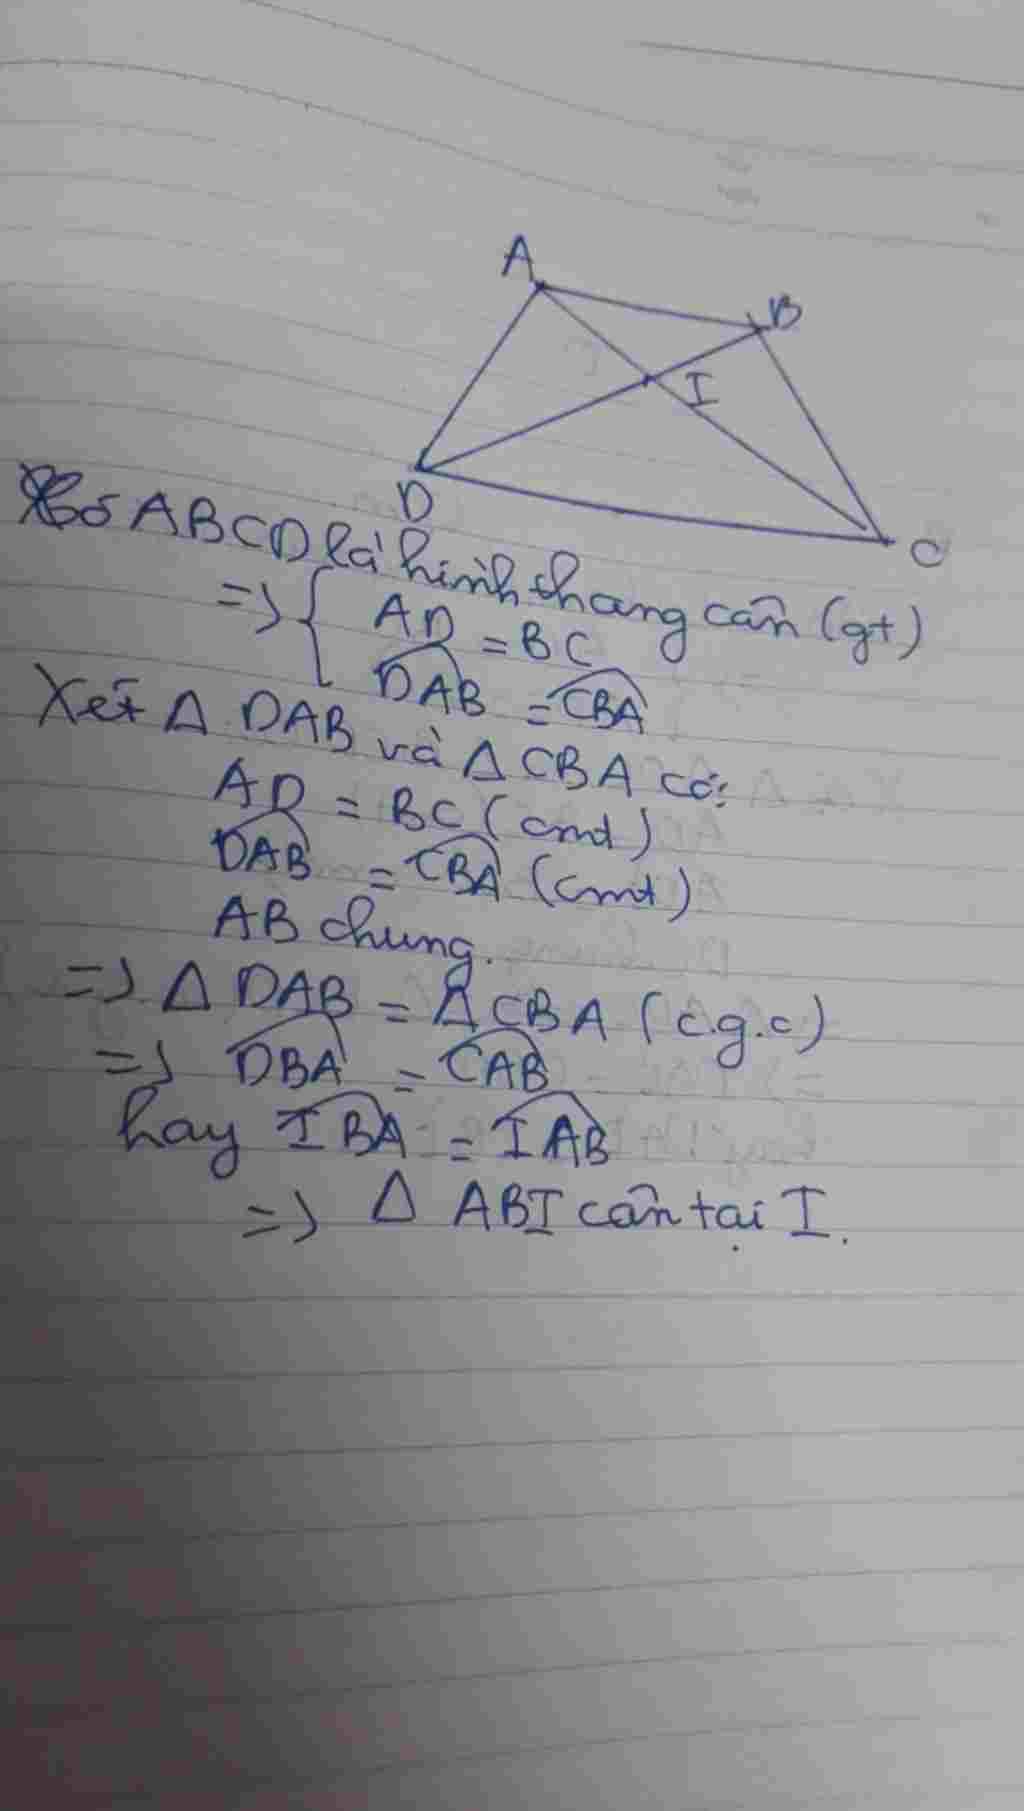 A
B
I
D
C
Có ABCD là hình thang cân (gt)
=> { AD = BC
DAB = CBA
Xét Δ DAB và Δ CBA có:
AD = BC (cmt)
DAB = CBA (cmt)
AB chung.
=> Δ DAB = Δ CBA (c.g.c)
=> DBA = CAB
hay IBA = IAB
=> Δ ABI cân tại I.